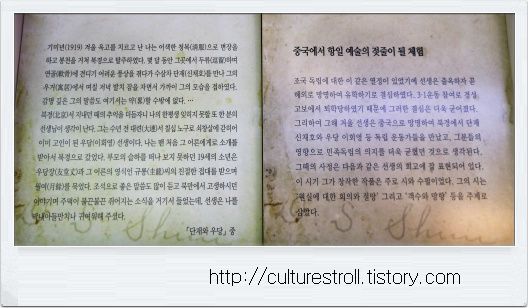 기미년(1919) 겨울 옥고를 치르고 난 나는 어색한 청복(淸服)으로 변장을
하고 봉천을 거쳐 북경으로 탈주하였다. 몇 달 동안 그곳에서 두류(逗留)하며
연골(軟骨)에 견디기 어려운 풍상을 겪다가 수삼차 단재(신채호)를 만나 그의
우거(寓居)에서 며칠 저녁 발치 잠을 자면서 가까이 그의 모습을 접하였다.
감명 깊은 그의 말씀도 여기서는 약(略)할 수밖에 없다. …
북경(北京)서 지내던 때의 추억을 더듬자니 나의 한평생 잊히지 못할 또 한 분의
선생님이 생각이 난다. 그는 수년 전 대련(大連)서 칠십 노구로 쇠창살에 갇히어
이미 고인이 된 우당(이회영) 선생이다. 나는 맨 처음 그 어른에게로 소개를
받아서 북경으로 갔었다. 부모의 슬하를 떠나 보지 못하던 19세의 소년은
우당장(友堂丈)과 그 어른의 영식인 규룡(圭龍)씨의 친절한 접대를 받으며
월여(月餘)를 묵었다. 조석으로 좋은 말씀도 많이 듣고 북만에서 고생하시던
이야기며 주먹이 불끈불끈 쥐어지는 소식을 거기서 들었는데, 선생은 나를
막내아들만치나 귀여워해 주셨다.
「단재와 우당」 중
중국에서 항일 예술의 젖줄이 될 체험
조국 독립에 대한 이 같은 열정이 있었기에 선생은 출옥하자 곧
해외로 망명하여 유학하기로 결심하였다. 3·1운동 참여로 경성
고보에서 퇴학당하였기 때문에 그러한 결심은 더욱 굳어졌다.
그리하여 그해 겨울 선생은 중국으로 망명하여 북경에서 단재
신채호와 우당 이회영 등 독립 운동가들을 만났고, 그분들의
영향으로 민족독립의 의지를 더욱 굳혔던 것으로 생각된다.
그때의 사정은 다음과 같은 선생의 회고에 잘 표현되어 있다.
이 시기 그가 창작한 작품은 주로 시와 수필이었다. 그의 시는
'현실에 대한 회의와 절망' 그리고 '객수와 방랑' 등을 주제로
삼았다.
http://culturestroll.tistory.com